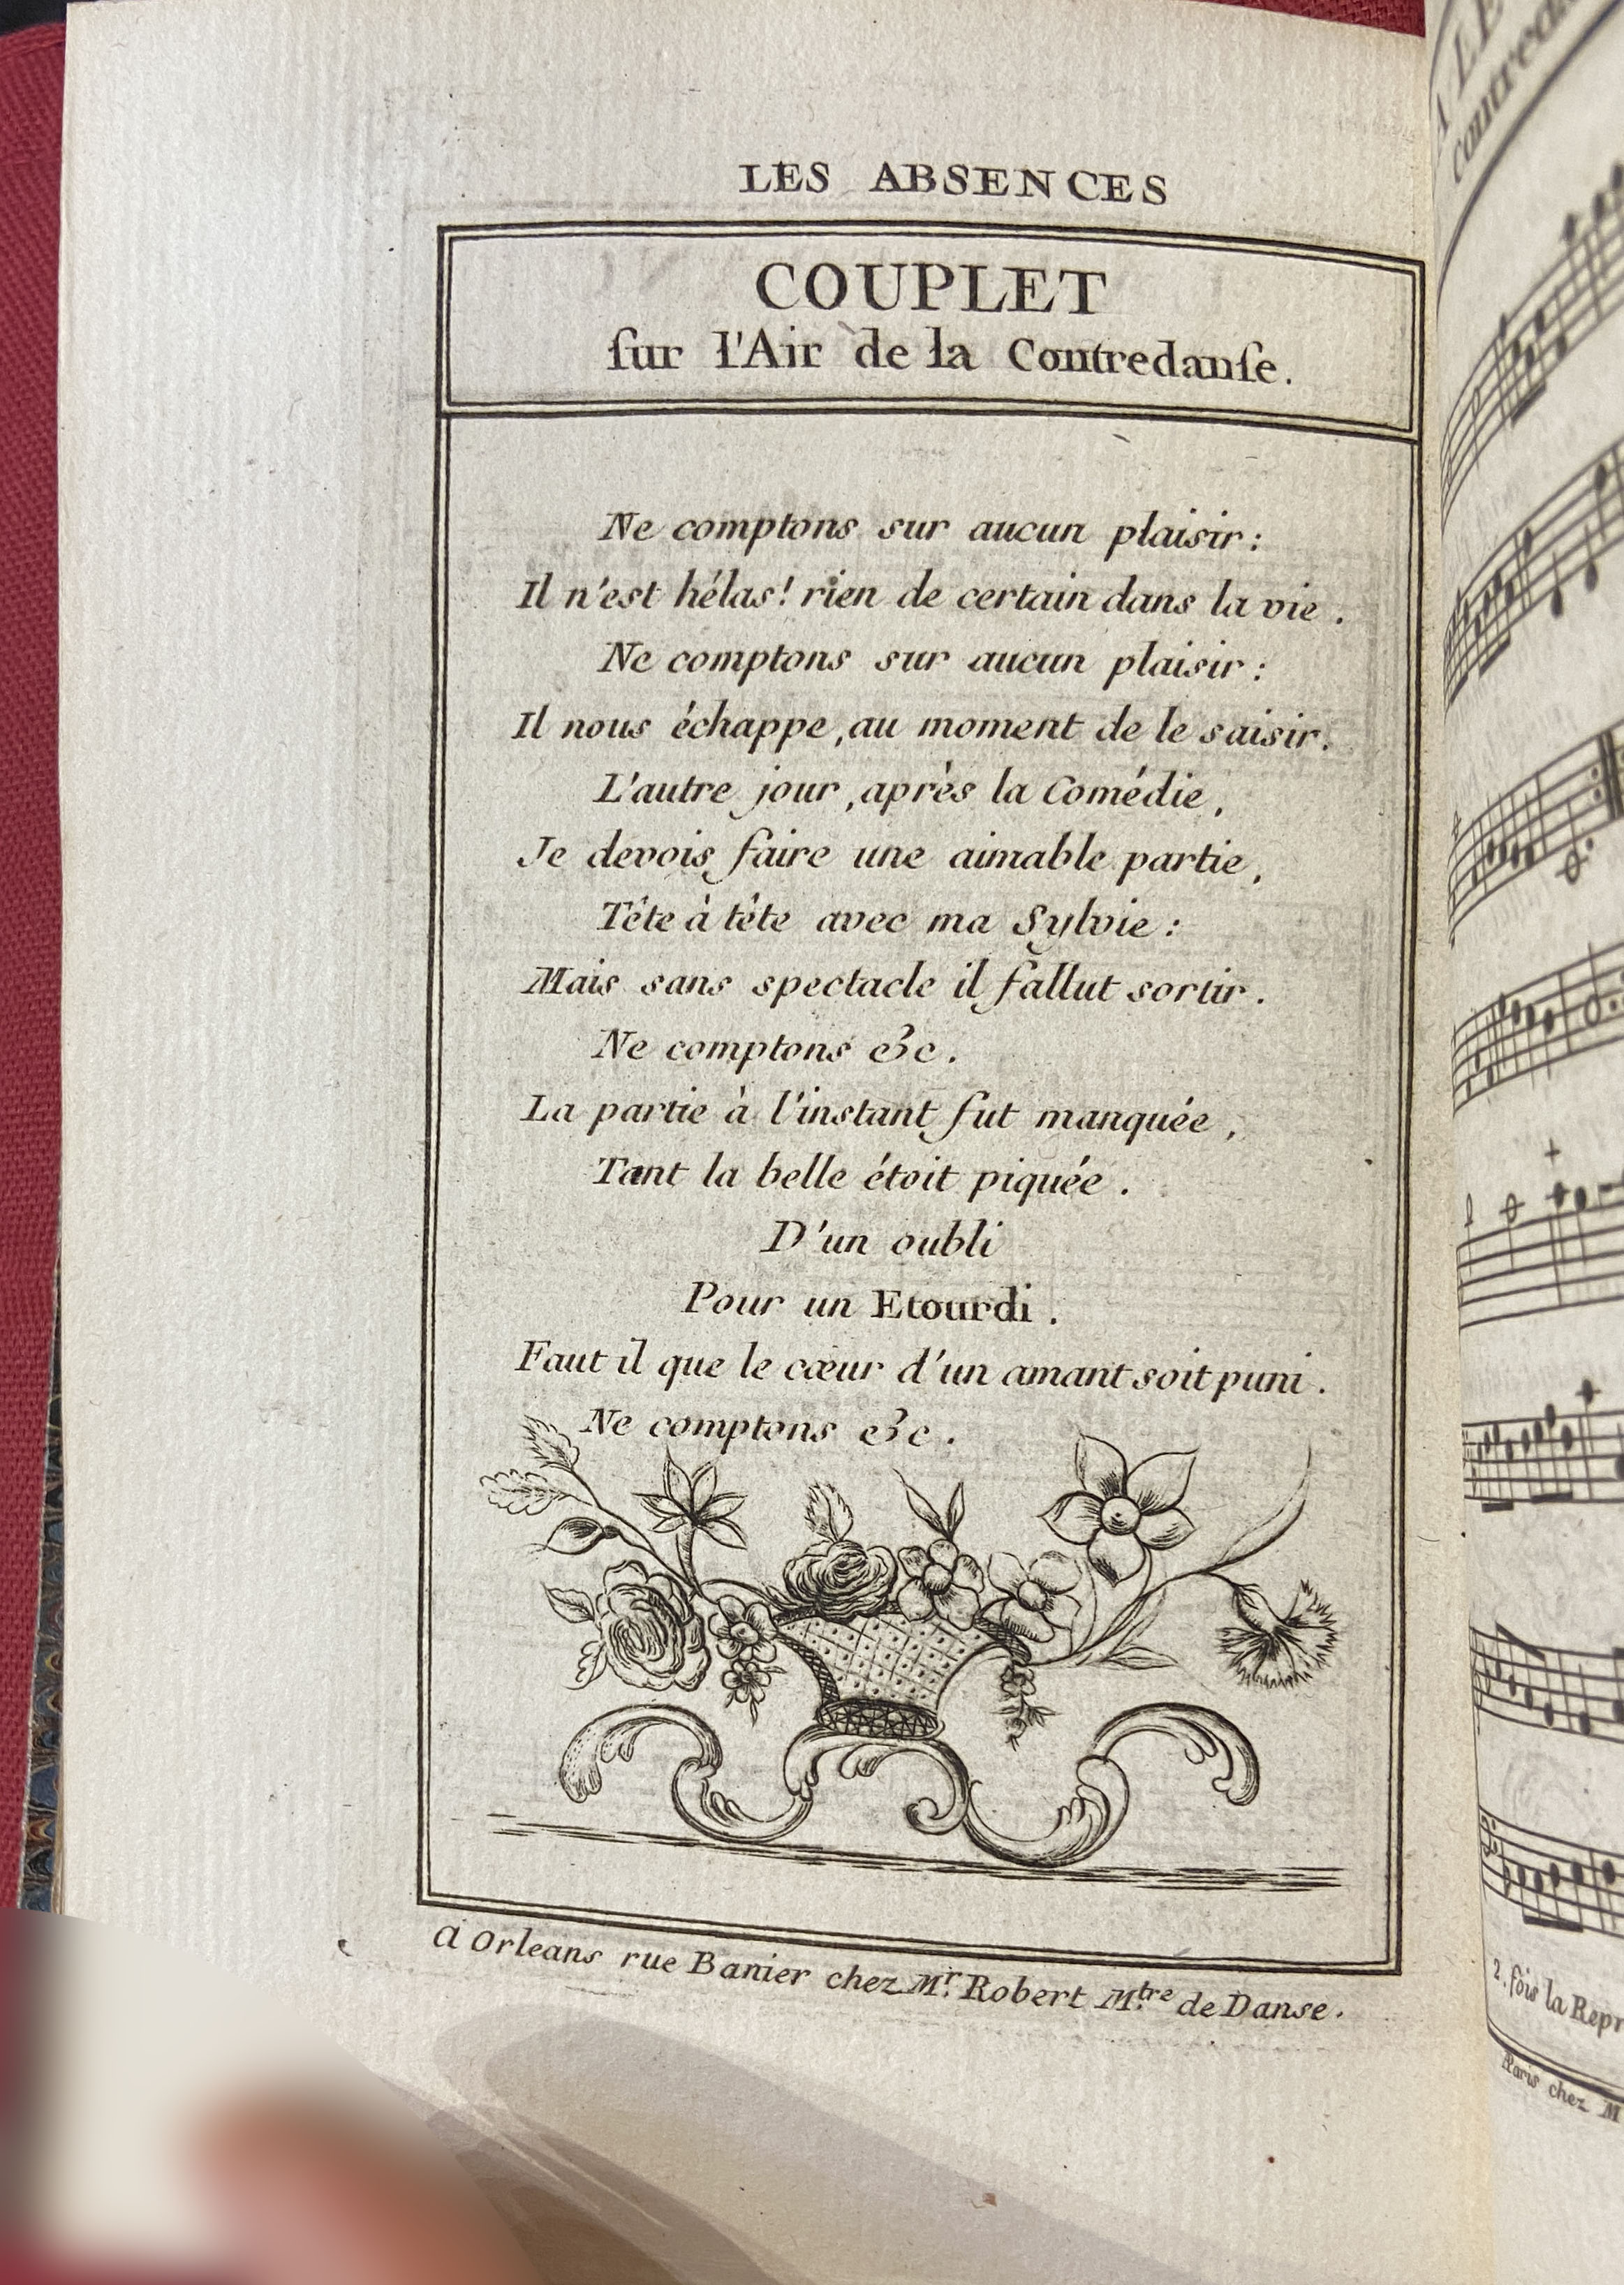 LES ABSENCES
COUPLET
ſur l'Air de la Contredanſe.
Ne comptons sur aucun plaisir:
Il n'est hélas! rien de certain dans la vie.
Ne comptons sur aucun plaisir:
Il nous échappe, au moment de le saisir.
L'autre jour, après la Comédie,
Je devois faire une aimable partie,
Tête à tête avec ma Sylvie:
Mais sans spectacle il fallut sortir.
Ne comptons &c.
La partie à l'instant fut manquée,
Tant la belle étoit piquée.
D'un oubli
Pour un Etourdi.
Faut il que le cœur d'un amant soit puni.
Ne comptons &c.
A Orleans rue Banier chez Mr. Robert Mtre de Danse.
A LE
Contreda
2. fois la Repr
Paris chez M